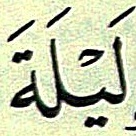 لَيْلَةَ